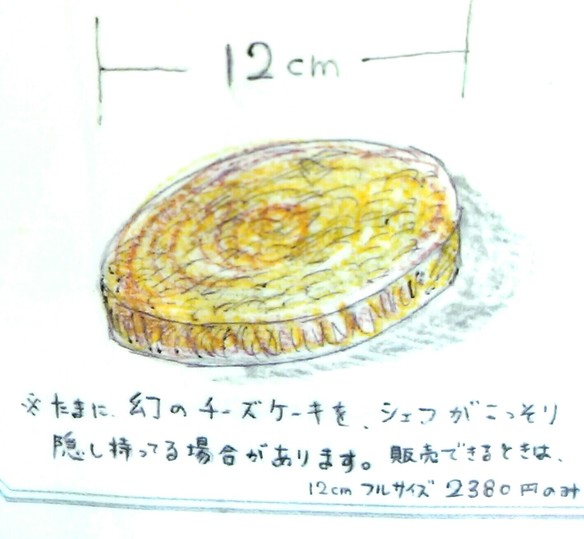 12cm
※たまに、幻のチーズケーキを、シェフがこっそり
隠し持ってる場合があります。販売できるときは、
12cm フルサイズ 2380円のみ